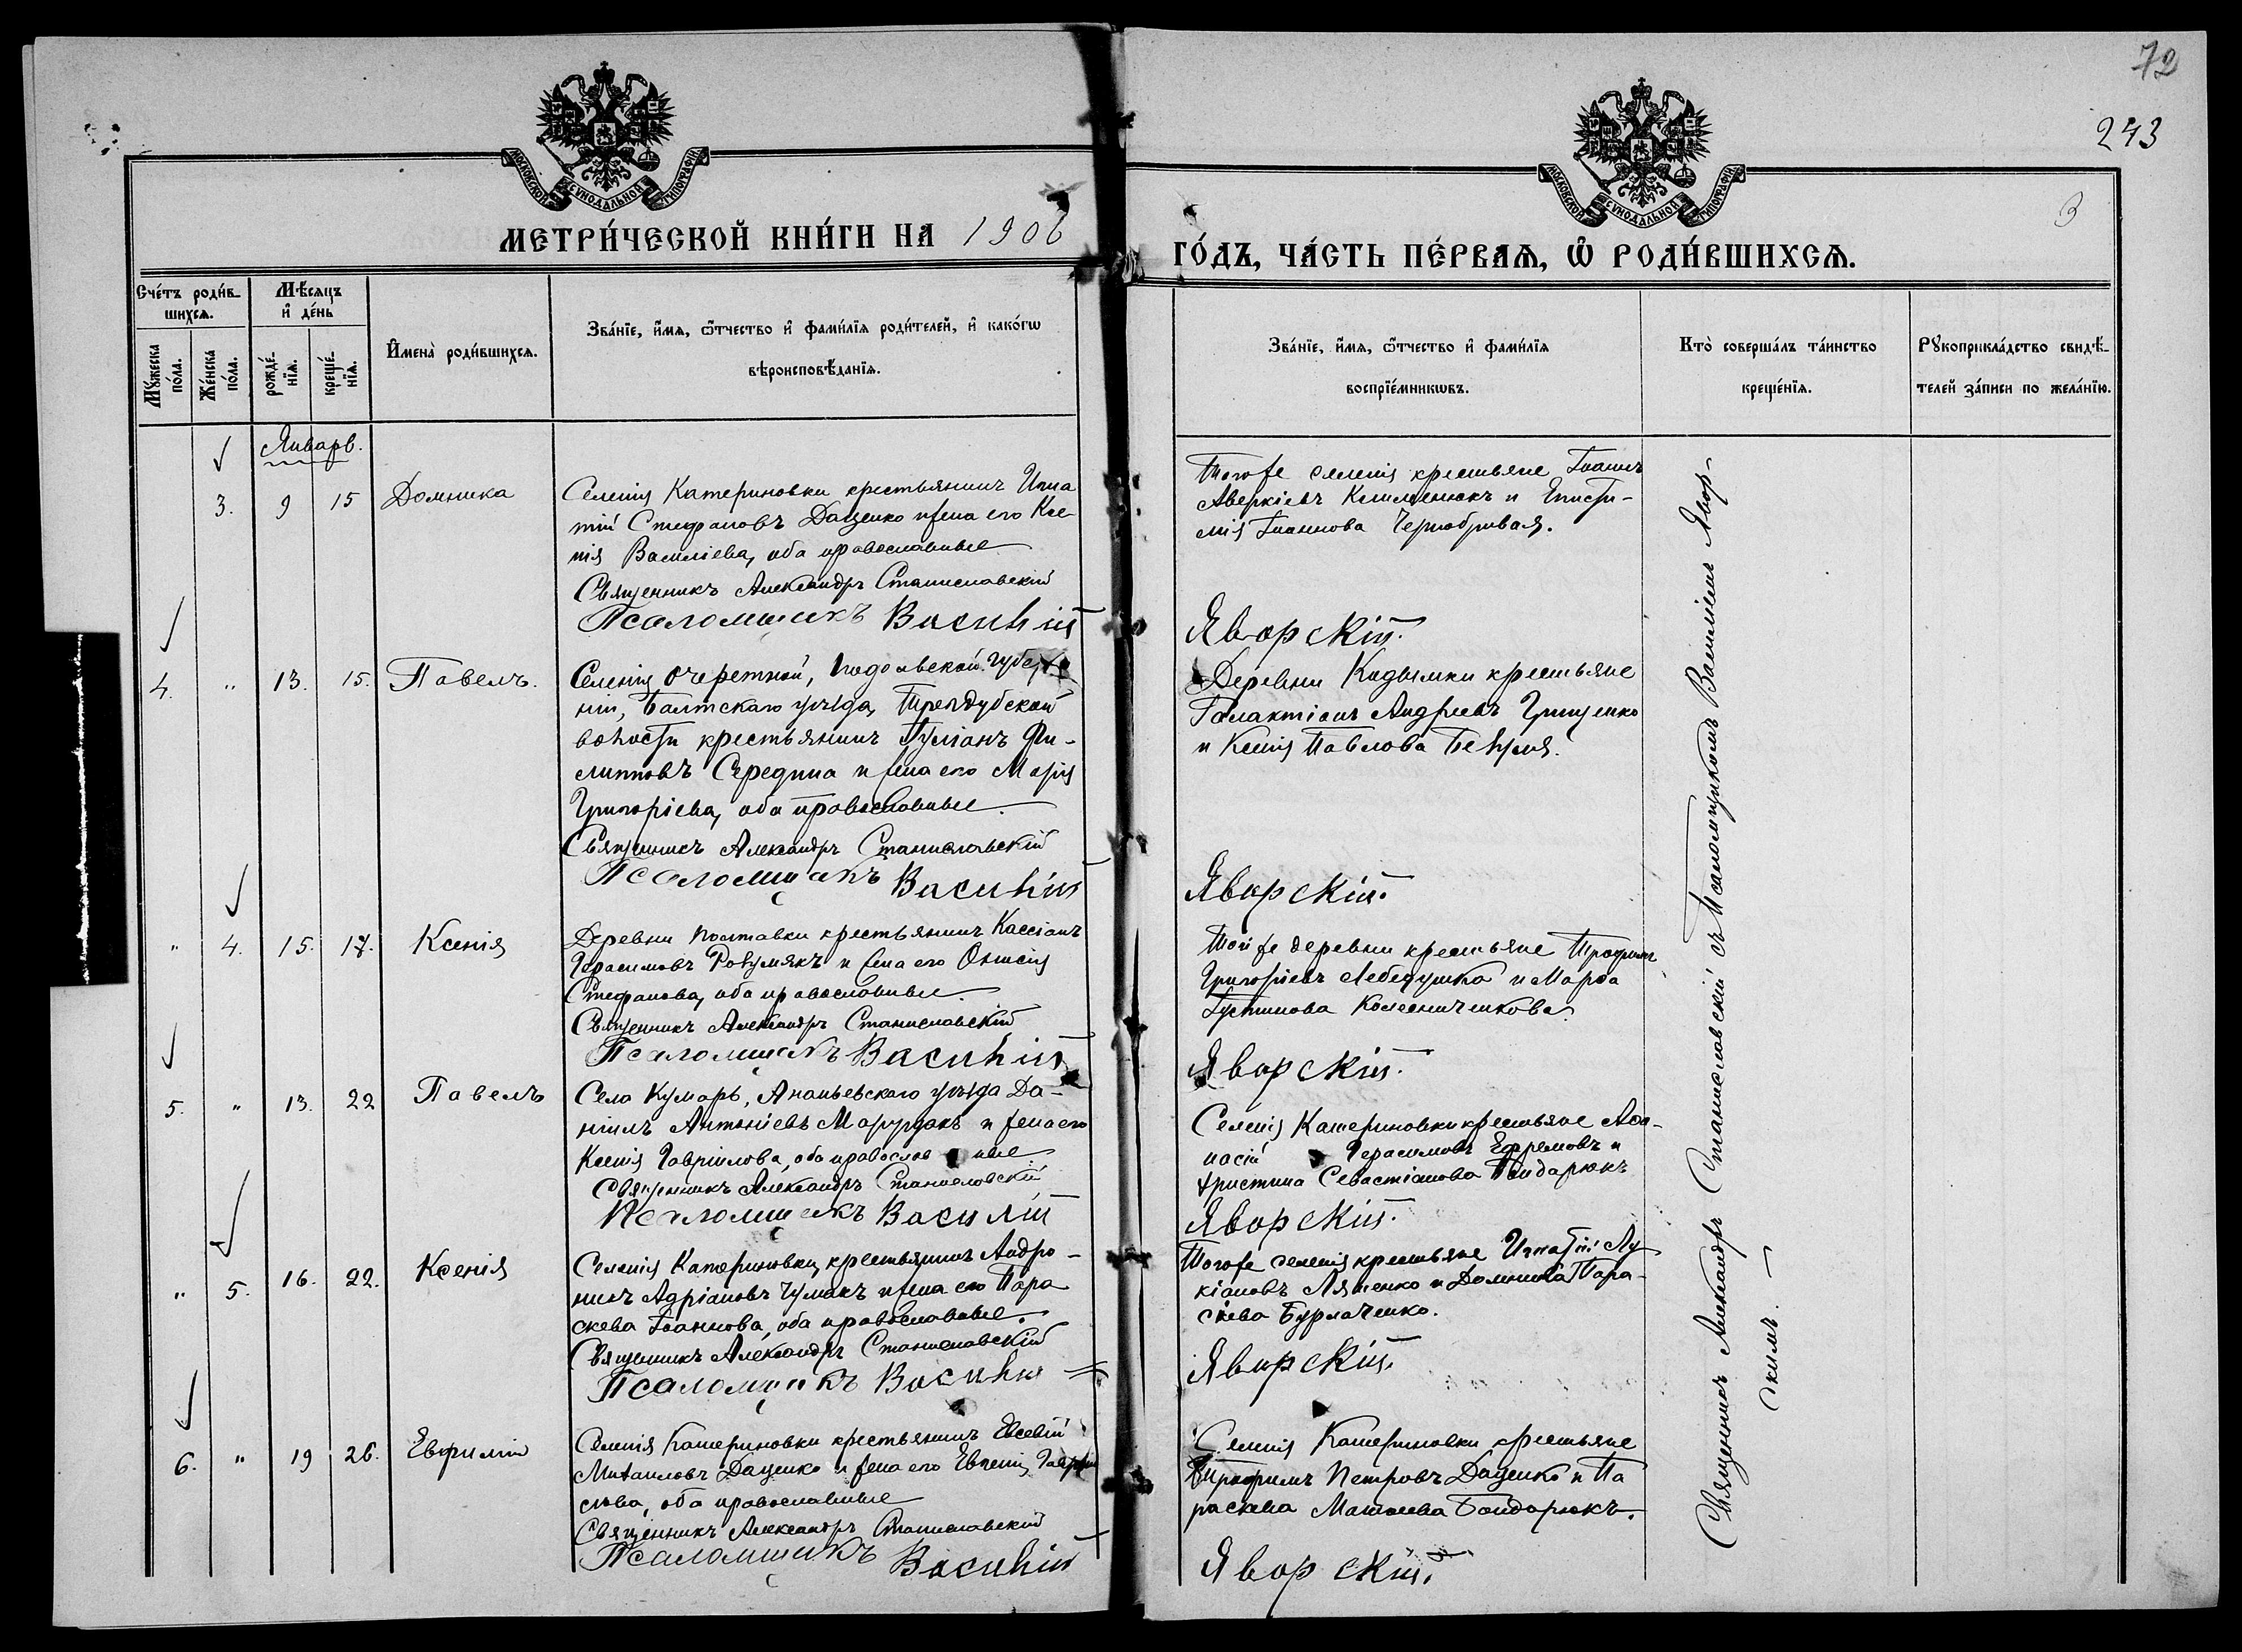 72
243
3
МОСКОВСКОЙ СУНОДАЛЬНОЙ ТИПОГРАФІИ
МОСКОВСКОЙ СУНОДАЛЬНОЙ ТИПОГРАФІИ
МЕТРИ́ЧЕСКОЙ КНИ́ГИ НА 1906
ГО́ДЪ, ЧА́СТЬ ПЕ́РВАѦ, Ѽ РОДИ́ВШИХСѦ.
Сче́тъ роди́в-
шихсѧ.
Мѣ́сѧцъ
и҆ де́нь
Мꙋ́жеска
по́ла.
Же́нска
по́ла.
рожде́-
нїѧ.
креще́-
нїѧ.
И҆мена̀ роди́вшихсѧ.
Зва́нїе, и҆́мѧ, ѻ҆́тчество и҆ фами́лїѧ роди́телей, и҆ како́гѡ
вѣроисповѣ́данїѧ.
Зва́нїе, и҆́мѧ, ѻ҆́тчество и҆ фами́лїѧ
воспрїе́мникѡвъ.
Кто̀ соверша́лъ та́инство
креще́нїѧ.
Рꙋкоприкла́дство свидѣ́-
телей за́писи по жела́нїю.
Январь.
3. 9 15 Домника
Селенія Катериновки крестьянинъ Игна
тій Стефановъ Даценко и жена его Ксе
нія Василіева, оба православные
Священникъ Александръ Станиславскій
Псаломщикъ Василій
Того же селенія крестьяне Іоаннъ
Аверкіевъ и Еписти-
мія Іоаннова Чернобривая.
Яворскій.
4. " 13. 15. Павелъ.
Селенія Очеретной, Подольской Губер
ніи, Балтскаго уѣзда, Трояндубской
волости крестьянинъ Іуліанъ Фи-
липповъ Середина и жена его Марія
Григоріева, оба православные.
Священникъ Александръ Станиславскій
Псаломщикъ Василій
Деревни Кадымки крестьяне
Галактіонъ Андреевъ Грищенко
и Ксенія Павлова
Яворскій.
" 4. 15. 17. Ксенія
Деревни Полтавки крестьянинъ Кассіанъ
Герасимовъ и жена его Онисія
Стефанова, оба православные.
Священникъ Александръ Станиславскій
Псаломщикъ Василій
Той же деревни крестьяне Трофимъ
Григоріевъ Лебедушка и Марѳа
Іустинова Колесниченкова.
Яворскій.
5. " 13. 22 Павелъ
Села Кумаръ, Ананьевскаго уѣзда Да-
ніилъ Антоніевъ Марущакъ и жена его
Ксенія Гавріилова, оба православные
Священникъ Александръ Станиславскій
Псаломщикъ Василій
Селенія Катериновки крестьяне Аѳа-
насій Герасимовъ Ефремовъ и
Христина Севастіанова Бондарюкъ
Яворскій.
" 5. 16. 22. Ксенія
Селенія Катериновки, крестьянинъ Андро-
никъ Адріановъ Чумакъ и жена его Пара
скева Іоаннова, оба православные.
Священникъ Александръ Станиславскій
Псаломщикъ Василій
Того же селенія крестьяне Игнатій Лу
кіановъ Ляшенко и Домника Пара-
скева Бурлаченко.
Яворскій.
6. " 19 26. Евфимій
Селенія Катериновки крестьянинъ Евсевій
Михаиловъ Даценко и жена его Евгенія Гаврии
лова, оба православные
Священникъ Александръ Станиславскій
Псаломщикъ Василій
Селенія Катериновки крестьяне
Трофимъ Петровъ Даценко и Па
раскева Матѳеева Бондарюкъ.
Яворскій.
Священникъ Александръ Станиславскій съ Псаломщикомъ Василіемъ Явор-
скимъ. —